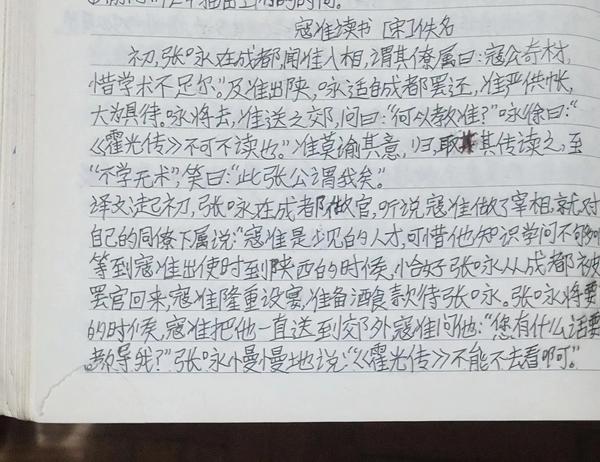 寇准读书 [宋]佚名
初,张咏在成都,闻准入相,谓其僚属曰:寇公奇材,
惜学术不足尔。”及准出陕,咏适自成都罢还,准严供帐,
大为具待。咏将去,准送之郊,问曰:“何以教准?”咏徐曰:“
《霍光传》不可不读也。”准莫谕其意,归,取其传读之,至
“不学无术”,笑曰:“此张公谓我矣。”
译文:起初,张咏在成都做官,听说寇准做了宰相,就对
自己的同僚下属说:“寇准是少见的人才,可惜他知识学问不够
等到寇准出使时到陕西的时候,恰好张咏从成都被
罢官回来,寇准隆重设宴,准备酒食款待张咏。张咏将要
的时候,寇准把他一直送到郊外寇准问他:“您有什么话要
教导我?”张咏慢慢地说:“《霍光传》不能不去看啊。”